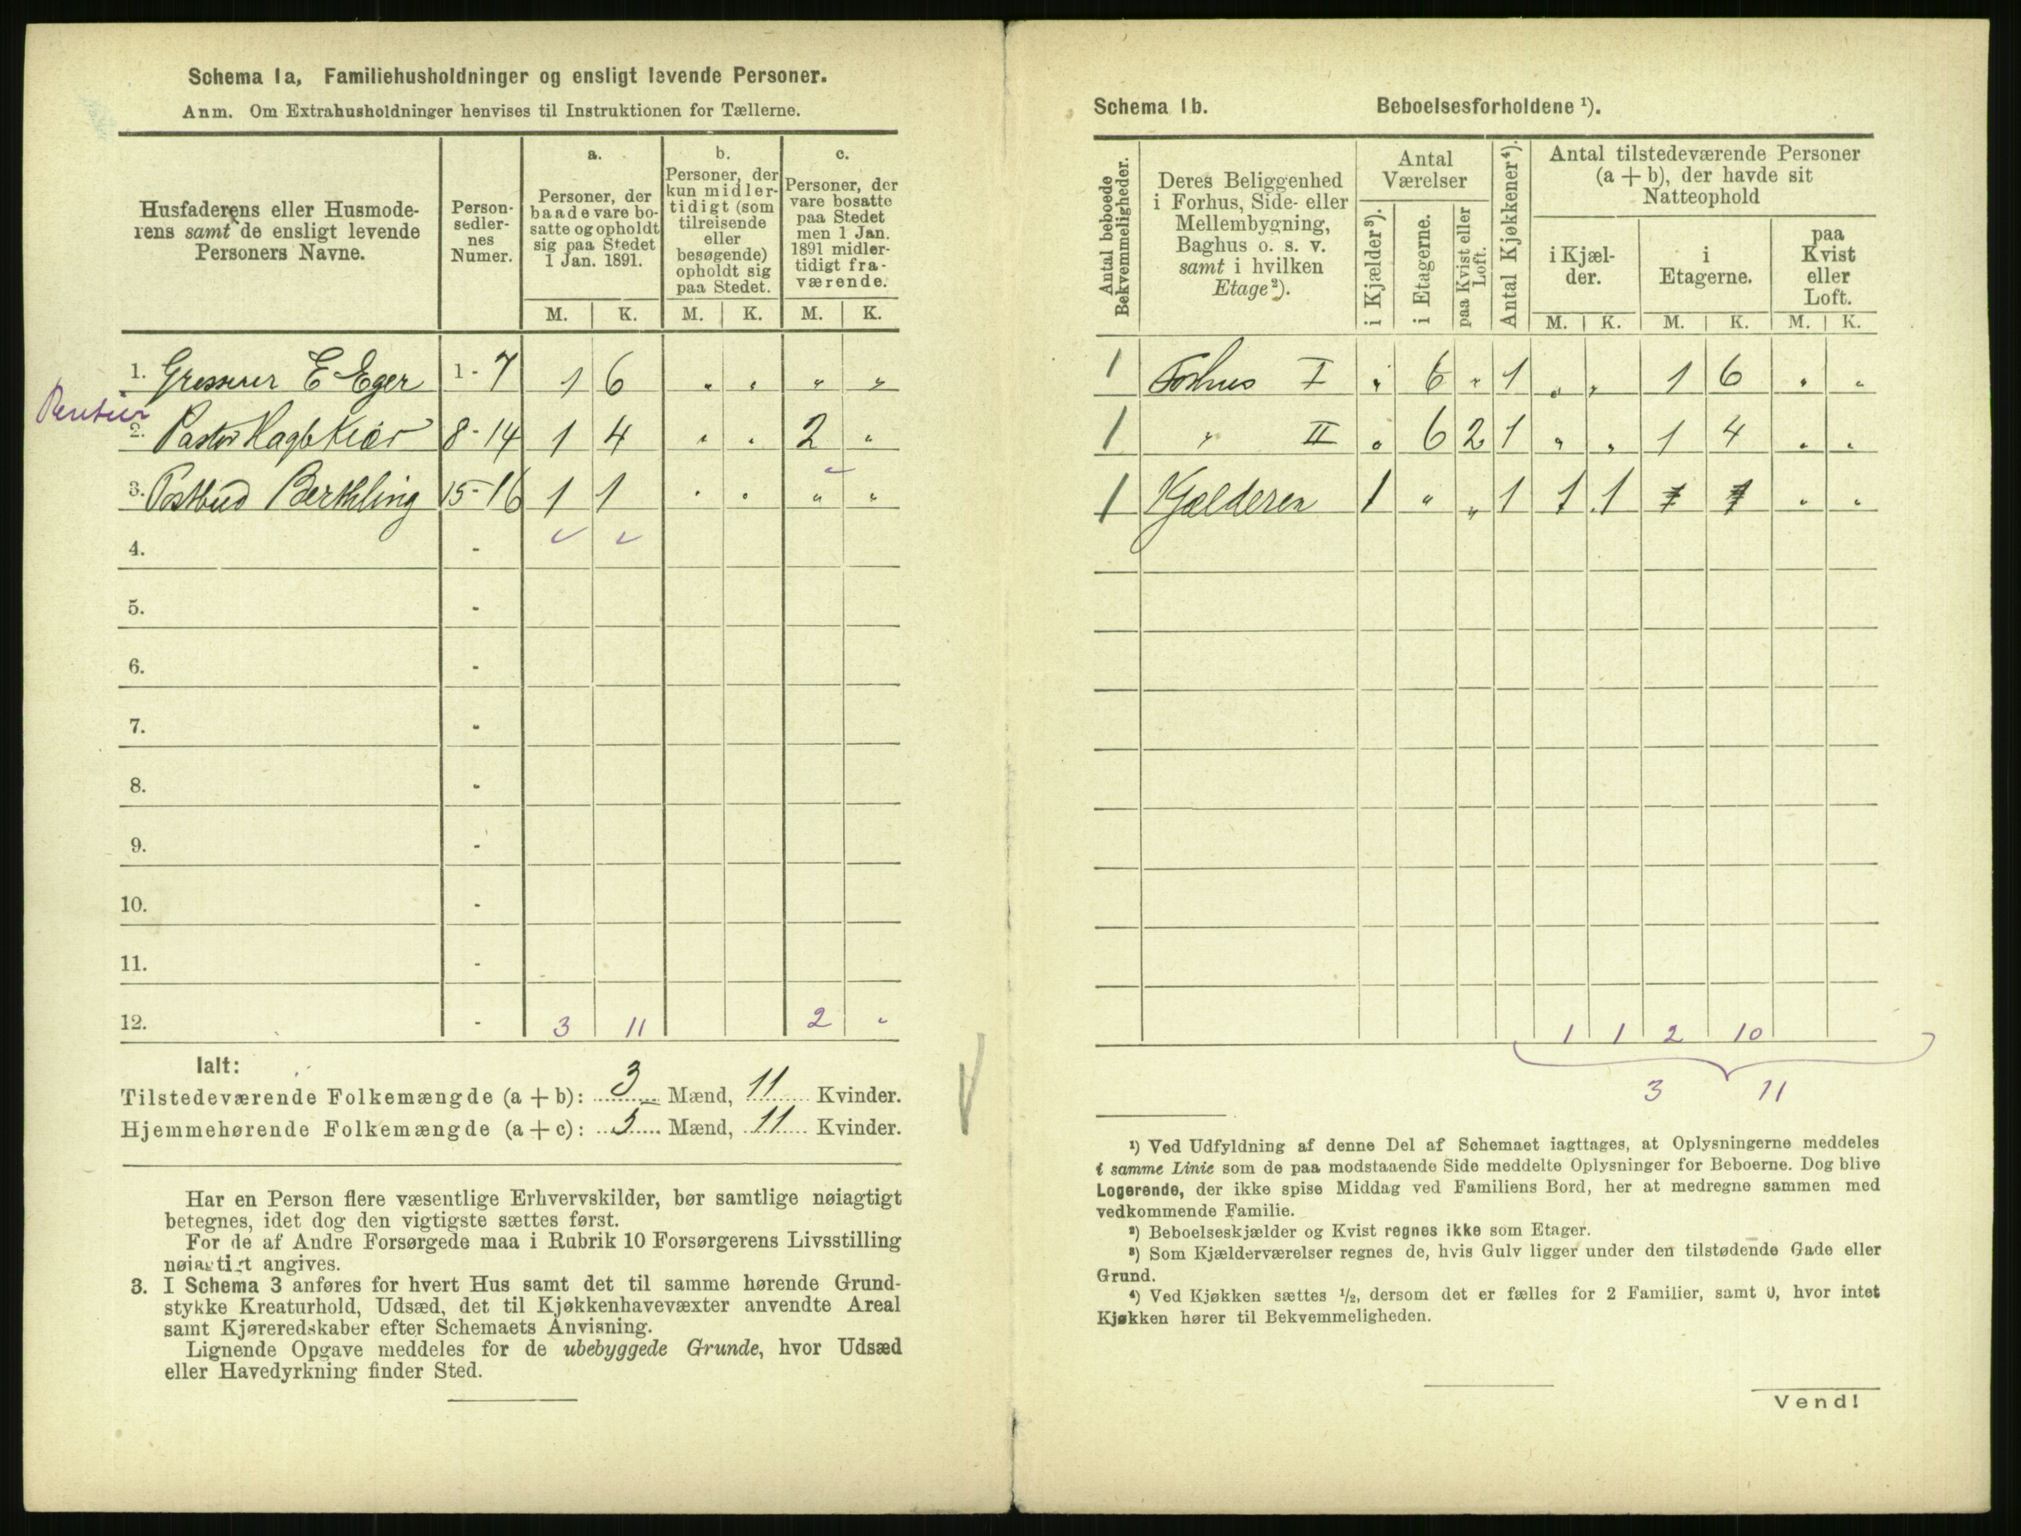 Schema 1a, Familiehusholdninger og ensligt levende Personer.
Anm. Om Extrahusholdninger henvises til Instruktionen for Tællerne.
Husfaderens eller Husmode-
rens samt de ensligt levende
Personers Navne.
Person-
sedler-
nes
Numer.
a.
Personer, der
baade vare bo-
satte og opholdt
sig paa Stedet
1 Jan. 1891.
b.
Personer, der
kun midler-
tidigt (som
tilreisende
eller
besøgende)
opholdt sig
paa Stedet.
c.
Personer, der
vare bosatte
paa Stedet
men 1 Jan.
1891 midler-
tidigt fra-
værende.
M. K. M. K. M. K.
1. Grosserer E Eger 1-7 1 6 " " " "
Rentier
2. Pastor Hagb Kiær 8-14 1 4 " " 2 "
3. Postbud Berthling 15-16 1 1 " " " "
4. -
5. -
6. -
7. -
8. -
9. -
10. -
11. -
12. - 3 11 2 "
Ialt:
Tilstedeværende Folkemængde (a + b): 3 Mænd, 11 Kvinder.
Hjemmehørende Folkemængde (a + c): 5 Mænd, 11 Kvinder.
Har en Person flere væsentlige Erhvervskilder, bør samtlige nøiagtigt
betegnes, idet dog den vigtigste sættes først.
For de af Andre Forsørgede maa i Rubrik 10 Forsørgerens Livsstilling
nøiagtigt angives.
3. I Schema 3 anføres for hvert Hus samt det til samme hørende Grund-
stykke Kreaturhold, Udsæd, det til Kjøkkenhavevæxter anvendte Areal
samt Kjøreredskaber efter Schemaets Anvisning.
Lignende Opgave meddeles for de ubebyggede Grunde, hvor Udsæd
eller Havedyrkning finder Sted.
Schema 1b. Beboelsesforholdene ¹).
Antal beboede
Bekvemmeligheder.
Deres Beliggenhed
i Forhus, Side- eller
Mellembygning,
Baghus o. s. v.
samt i hvilken
Etage²).
Antal
Værelser
i Kjælder³).
i Etagerne.
paa Kvist eller
Loft.
Antal Kjøkkener⁴).
Antal tilstedeværende Personer
(a + b), der havde sit
Natteophold
i Kjæl-
der.
i
Etagerne.
paa
Kvist
eller
Loft.
M. K. M. K. M. K.
1 Forhus I " 6 " 1 " " 1 6 " "
1 " II " 6 2 1 " " 1 4 " "
1 Kjælderen 1 " " 1 1 1 1 1 " "
1 1 2 10
3 11
¹) Ved Udfyldning af denne Del af Schemaet iagttages, at Oplysningerne meddeles
i samme Linie som de paa modstaaende Side meddelte Oplysninger for Beboerne. Dog blive
Logerende, der ikke spise Middag ved Familiens Bord, her at medregne sammen med
vedkommende Familie.
²) Beboelseskjælder og Kvist regnes ikke som Etager.
³) Som Kjælderværelser regnes de, hvis Gulv ligger under den tilstødende Gade eller
Grund.
⁴) Ved Kjøkken sættes ½, dersom det er fælles for 2 Familier, samt 0, hvor intet
Kjøkken hører til Bekvemmeligheden.
Vend!